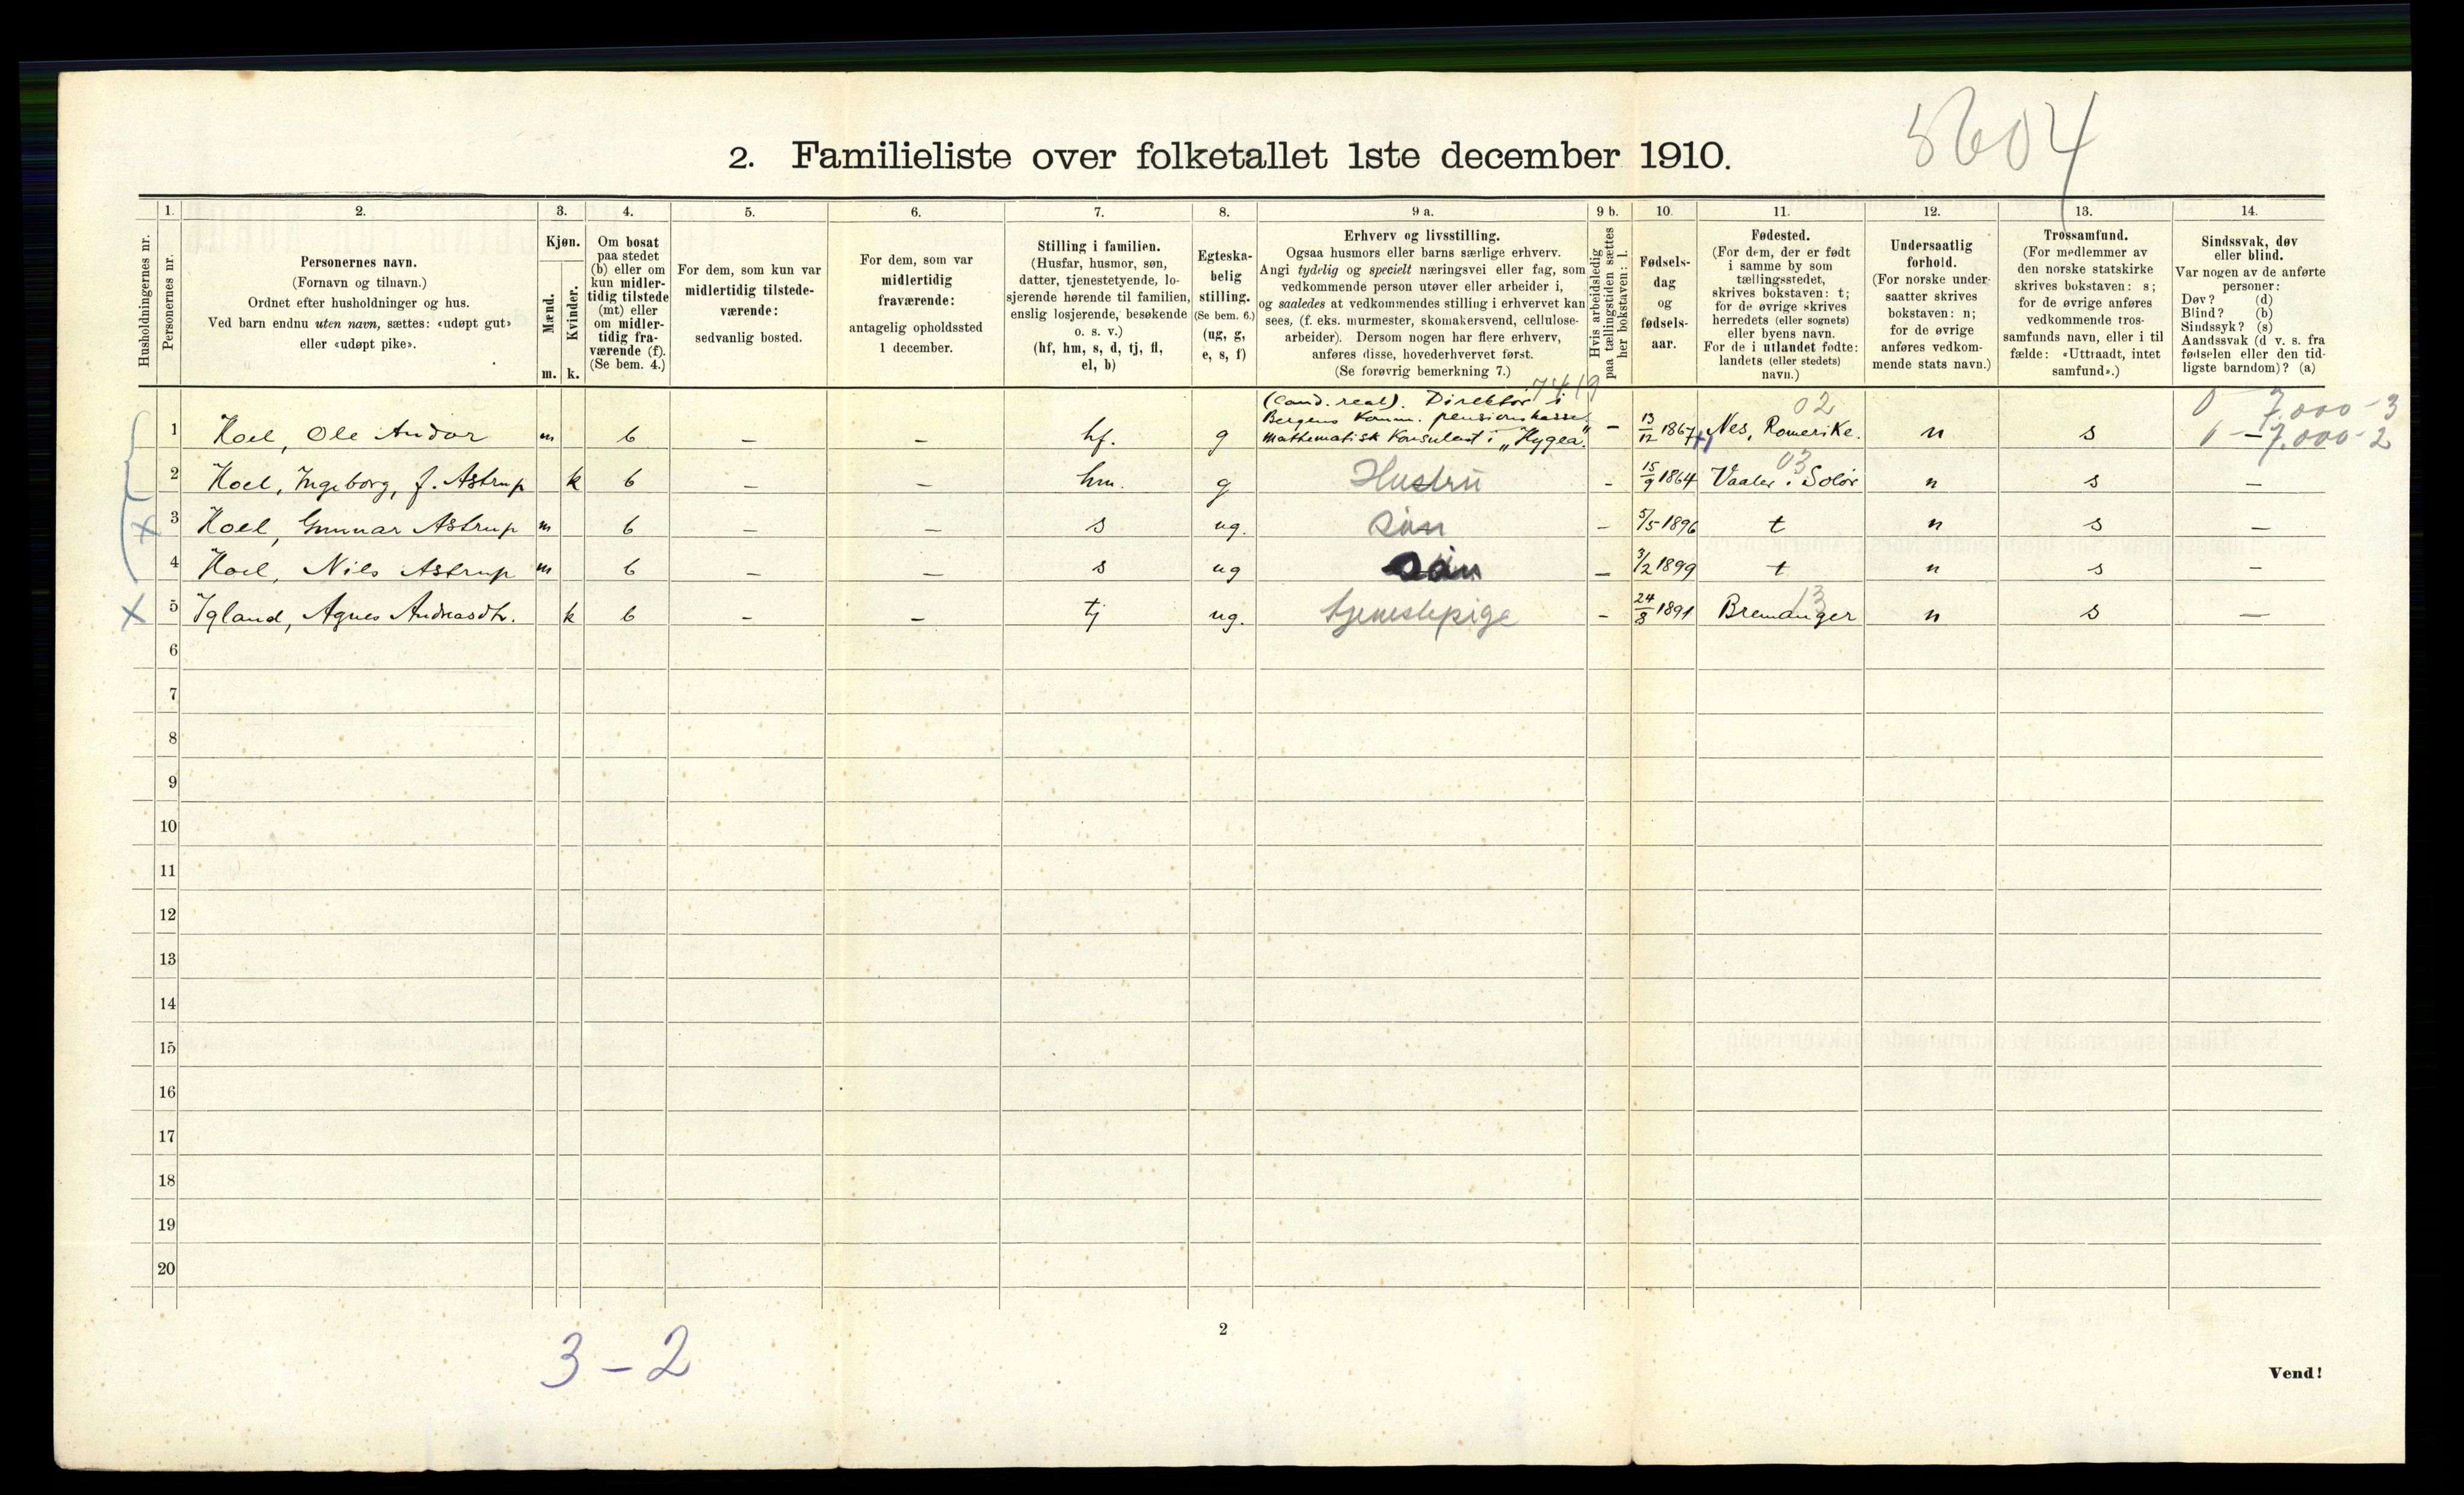 5604
2. Familieliste over folketallet 1ste december 1910.
Husholdningernes nr.
1.
Personernes nr.
2.
Personernes navn.
(Fornavn og tilnavn.)
Ordnet efter husholdninger og hus.
Ved barn endnu uten navn, sættes: «udøpt gut»
eller «udøpt pike».
3.
Kjøn.
Mænd.
Kvinder.
m. k.
4.
Om bosat
paa stedet
(b) eller om
kun midler-
tidig tilstede
(mt) eller
om midler-
tidig fra-
værende (f).
(Se bem. 4.)
5.
For dem, som kun var
midlertidig tilstede-
værende:
sedvanlig bosted.
6.
For dem, som var
midlertidig
fraværende:
antagelig opholdssted
1 december.
7.
Stilling i familien.
(Husfar, husmor, søn,
datter, tjenestetyende, lo-
sjerende hørende til familien,
enslig losjerende, besøkende
o. s. v.)
(hf, hm, s, d, tj, fl,
el, b)
8.
Egteska-
belig
stilling.
(Se bem. 6.)
(ug, g,
e, s, f)
9 a.
Erhverv og livsstilling.
Ogsaa husmors eller barns særlige erhverv.
Angi tydelig og specielt næringsvei eller fag, som
vedkommende person utøver eller arbeider i,
og saaledes at vedkommendes stilling i erhvervet kan
sees, (f. eks. murmester, skomakersvend, cellulose-
arbeider). Dersom nogen har flere erhverv,
anføres disse, hovederhvervet først.
(Se forøvrig bemerkning 7.)
9 b.
Hvis arbeidsledig
paa tællingstiden sættes
her bokstaven: l.
10.
Fødsels-
dag
og
fødsels-
aar.
11.
Fødested.
(For dem, der er født
i samme by som
tællingsstedet,
skrives bokstaven: t;
for de øvrige skrives
herredets (eller sognets)
eller byens navn.
For de i utlandet fødte:
landets (eller stedets)
navn.)
12.
Undersaatlig
forhold.
(For norske under-
saatter skrives
bokstaven: n;
for de øvrige
anføres vedkom-
mende stats navn.)
13.
Trossamfund.
(For medlemmer av
den norske statskirke
skrives bokstaven: s;
for de øvrige anføres
vedkommende tros-
samfunds navn, eller i til
fælde: «Uttraadt, intet
samfund».)
14.
Sindssvak, døv
eller blind.
Var nogen av de anførte
personer:
Døv? (d)
Blind? (b)
Sindssyk? (s)
Aandssvak (d v. s. fra
fødselen eller den tid-
ligste barndom)? (a)
7419
(Cand. real). Direktør i
Bergens Komm. pensionskasse.
02
7.000 - 3
1 Hoel, Ole Andor m b – – hf. g Mathematisk Konsulent i „Hygea" – 13/12 1867 Nes, Romerike. n s – 7.000 - 2
03
2 Hoel, Ingeborg, f. Astrup k b – – hm. g Hustru – 15/9 1864 Vaaler i Solør n s –
3 Hoel, Gunnar Astrup m b – – s ug. Søn – 5/5 1896 t n s –
4 Hoel, Nils Astrup m b – – s ug Søn – 3/2 1899 t n s –
13
5 Igland, Agnes Andreasdtr. k b – – tj ug. tjenestepige – 24/8 1891 Bremanger n s –
6
7
8
9
10
11
12
13
14
15
16
17
18
19
20
2
3 – 2
Vend!